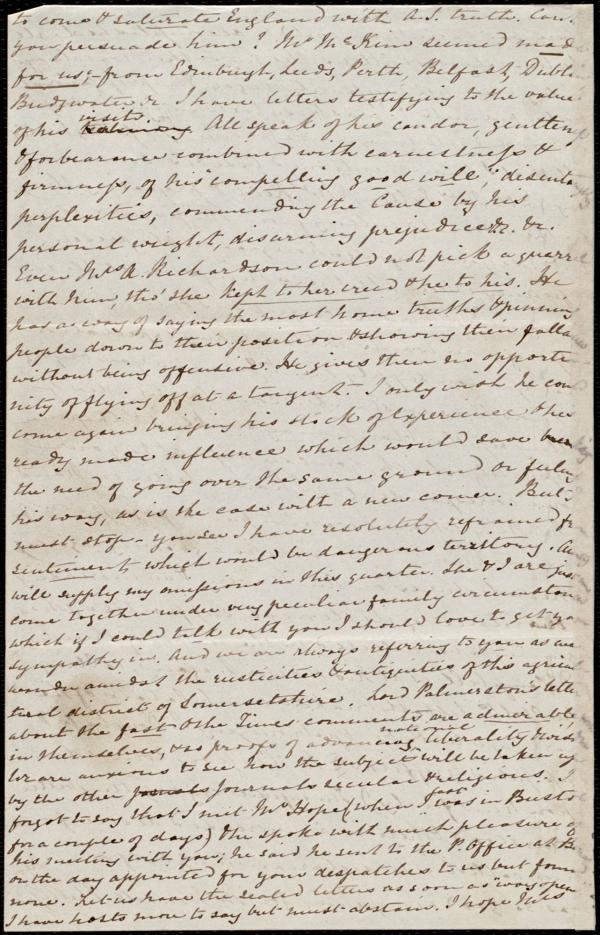 to come & saturate England with A.S. truth. Can
you persuade him? Mr McKim seemed made
for us;- from Edinburgh, Leeds, Perth, Belfast, Dubl
Bridgwater &c. I have letters testifying to the value
of his visits. All speak of his candor, gentlen
& forbearance combined with earnestness &
firmness, of his "compelling good will," disenta
perplexities, commending the Cause by his
personal weight, disarming prejudice &c. &c.
Even Mrs A. Richardson could not pick a quarre
with him, tho' she kept to her creed & he to his. He
has a way of saying the most home truths & pinning
people down to their position & showing them falla
without being offensive. He gives them no opportu
nity of flying off at a tangent. I only wish he cou
come again bringing his stock of experience & his
ready made influence which would save
the need of going over the same ground or feeling
his way, as is the case with a new comer. But I
must stop - you see I have resolutely refrained fr
sentiment which would be dangerous territory.
will supply my omissions in this quarter. She & I are jus
come together under very peculiar family circumstan
which if I could talk with you I should love to get yr
sympathy in. And we are always referring to you as we
wander amidst the rusticities & antiquities of this agricul
tural district of Somersetshire. Lord Palmerston's lette
about the fast & the Times comments are admirable
in themselves, & as proofs of advancing liberality
We are anxious to see how the subject will be taken up
by the other Journals secular & religious. I
forgot to say that I met Mr Hope (when I was last in Bristo
for a couple of days) & he spoke with much pleasure o
his meeting with you; he said he sent to the P. Office at B
on the day appointed for your despatches to us but foun
none. Let us have the sealed letters as soon as
I have hosts more to say but must abstain. I hope